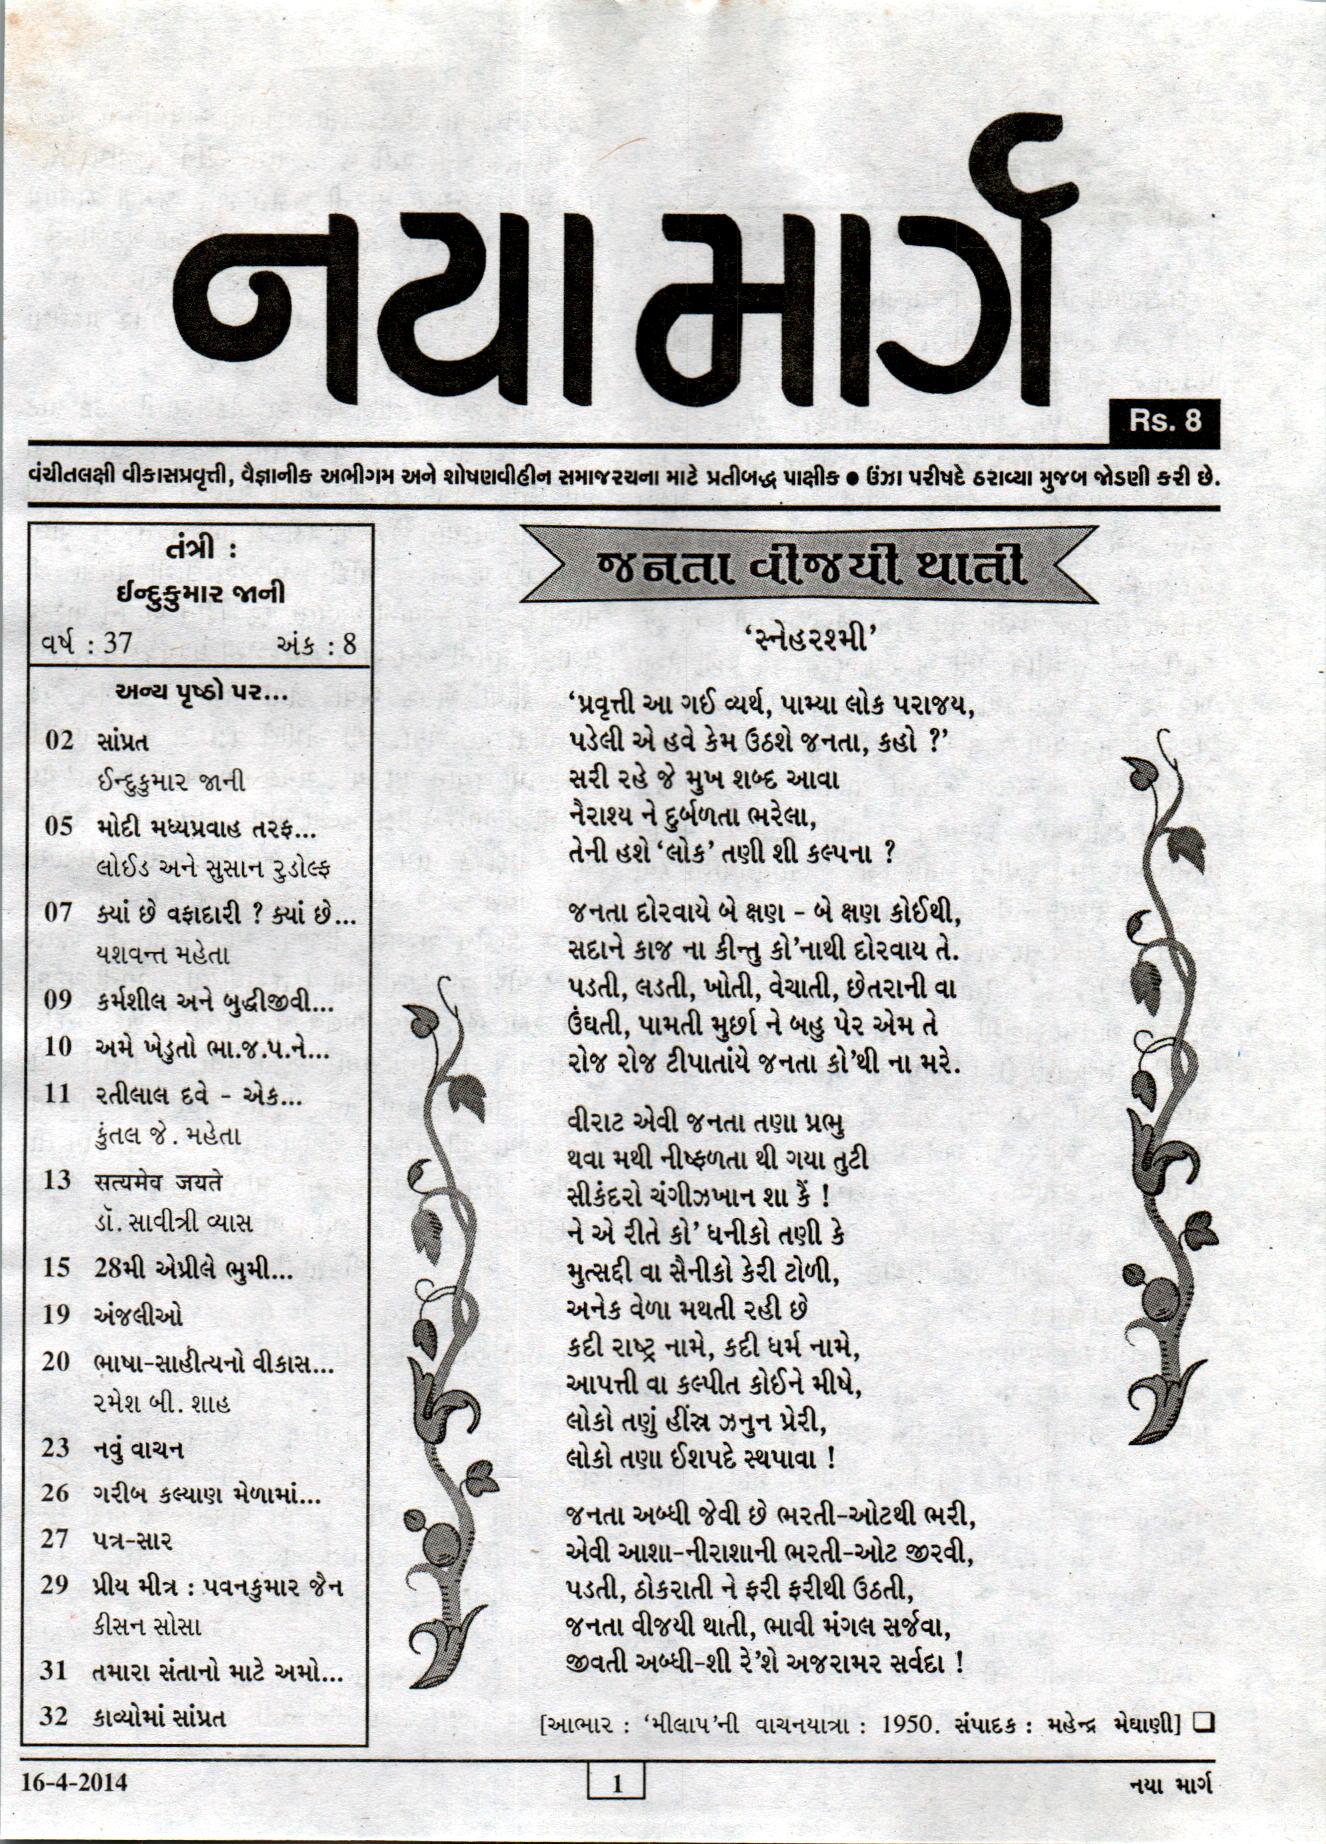 નયા માર્ગ
Rs. 8
વંચીતલક્ષી વીકાસપ્રવૃત્તી, વૈજ્ઞાનીક અભીગમ અને શોષણવીહીન સમાજરચના માટે પ્રતીબદ્ધ પાક્ષીક ● ઉંઝા પરીષદે ઠરાવ્યા મુજબ જોડણી કરી છે.
તંત્રી :
ઈન્દુકુમાર જાની
વર્ષ : 37 અંક : 8
અન્ય પૃષ્ઠો પર...
02 સાંપ્રત
ઈન્દુકુમાર જાની
05 મોદી મધ્યપ્રવાહ તરફ...
લોઈડ અને સુસાન રુડોલ્ફ
07 ક્યાં છે વફાદારી ? ક્યાં છે...
યશવન્ત મહેતા
09 કર્મશીલ અને બુદ્ધીજીવી...
10 અમે ખેડુતો ભા.જ.પ.ને...
11 રતીલાલ દવે - એક...
કુંતલ જે. મહેતા
13 સત્યમેવ જયતે
ડૉ. સાવીત્રી વ્યાસ
15 28મી એપ્રીલે ભુમી...
19 અંજલીઓ
20 ભાષા-સાહીત્યનો વીકાસ...
રમેશ બી. શાહ
23 નવું વાચન
26 ગરીબ કલ્યાણ મેળામાં...
27 પત્ર-સાર
29 પ્રીય મીત્ર : પવનકુમાર જૈન
કીસન સોસા
31 તમારા સંતાનો માટે અમો...
32 કાવ્યોમાં સાંપ્રત
જનતા વીજયી થાતી
‘સ્નેહરશ્મી’
‘પ્રવૃત્તી આ ગઈ વ્યર્થ, પામ્યા લોક પરાજય,
પડેલી એ હવે કેમ ઉઠશે જનતા, કહો ?’
સરી રહે જે મુખ શબ્દ આવા
નૈરાશ્ય ને દુર્બળતા ભરેલા,
તેની હશે ‘લોક’ તણી શી કલ્પના ?
જનતા દોરવાયે બે ક્ષણ - બે ક્ષણ કોઈથી,
સદાને કાજ ના કીન્તુ કો’નાથી દોરવાય તે.
પડતી, લડતી, ખોતી, વેચાતી, છેતરાની વા
ઉંઘતી, પામતી મુર્છા ને બહુ પેર એમ તે
રોજ રોજ ટીપાતાંયે જનતા કો’થી ના મરે.
વીરાટ એવી જનતા તણા પ્રભુ
થવા મથી નીષ્ફળતા થી ગયા તુટી
સીકંદરો ચંગીઝખાન શા કૈં !
ને એ રીતે કો’ ધનીકો તણી કે
મુત્સદ્દી વા સૈનીકો કેરી ટોળી,
અનેક વેળા મથતી રહી છે
કદી રાષ્ટ્ર નામે, કદી ધર્મ નામે,
આપત્તી વા કલ્પીત કોઈને મીષે,
લોકો તણું હીંસ્ર ઝનુન પ્રેરી,
લોકો તણા ઈશપદે સ્થપાવા !
જનતા અબ્ધી જેવી છે ભરતી-ઓટથી ભરી,
એવી આશા-નીરાશાની ભરતી-ઓટ જીરવી,
પડતી, ઠોકરાતી ને ફરી ફરીથી ઉઠતી,
જનતા વીજયી થાતી, ભાવી મંગલ સર્જવા,
જીવતી અબ્ધી-શી રે’શે અજરામર સર્વદા !
[આભાર : ‘મીલાપ’ની વાચનયાત્રા : 1950. સંપાદક : મહેન્દ્ર મેઘાણી] ❑
16-4-2014
1
નયા માર્ગ